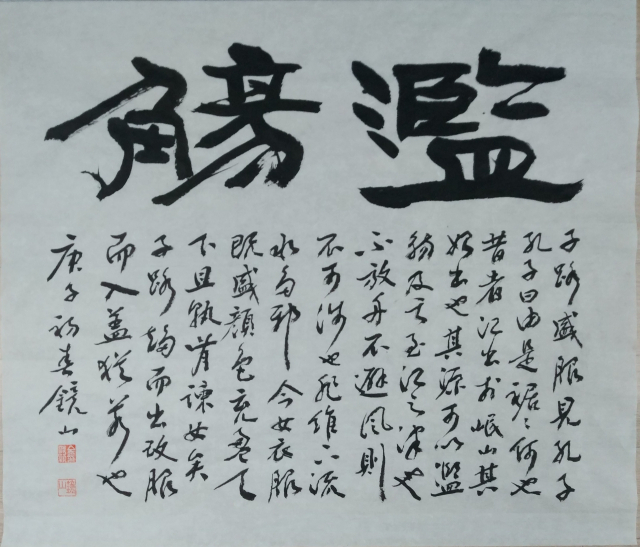 濫觴
子路盛服見孔子
孔子曰由是裾〻何也
昔者江出於岷山其
始出也其源可以濫
觴及其至江之津也
不放舟不避風則
不可涉也非維下流
水多邪今女衣服
既盛顔色充盈天
下且孰肯諫女矣
子路趨而出改服
而入蓋猶若也
庚子初春鏡山